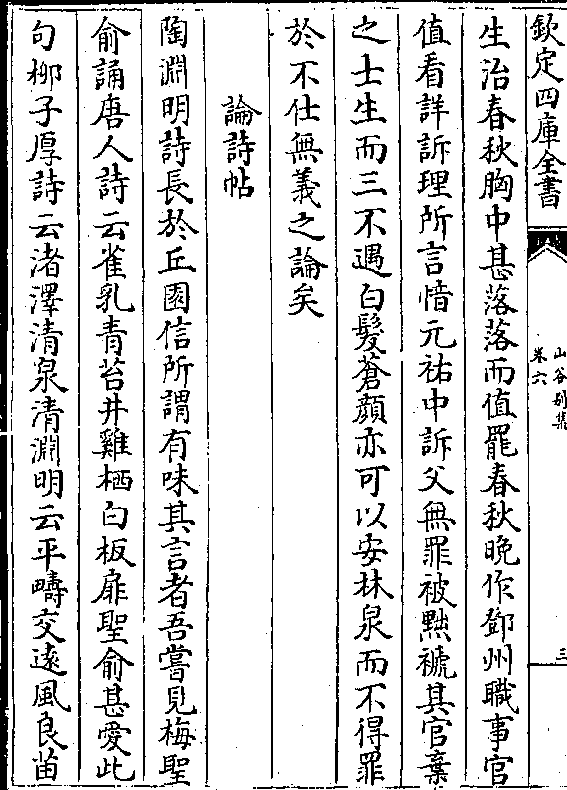 欽定四庫全書
山谷别集
卷六
三
生治春秋胸中甚落落而值罷春秋晚作鄧州職事官
值看詳訴理所言愔元祐中訴父無罪被黜褫其官棄
之士生而三不遇白髮蒼顔亦可以安林泉而不得罪
於不仕無義之論矣
論詩帖
陶淵明詩長於丘園信所謂有味其言者吾嘗見梅聖
俞誦唐人詩云雀乳青苔井雞栖白板扉聖俞甚愛此
句柳子厚詩云渚澤清泉清淵明云平疇交遠風良苗